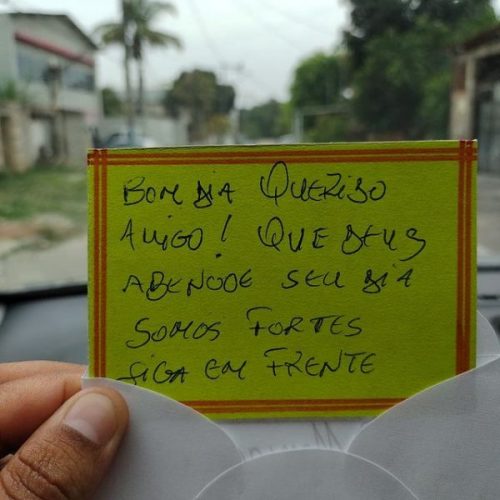 BOM DIA QUERIDO
AMIGO! QUE DEUS
ABENÇOE SEU DIA
SOMOS FORTES
SIGA EM FRENTE